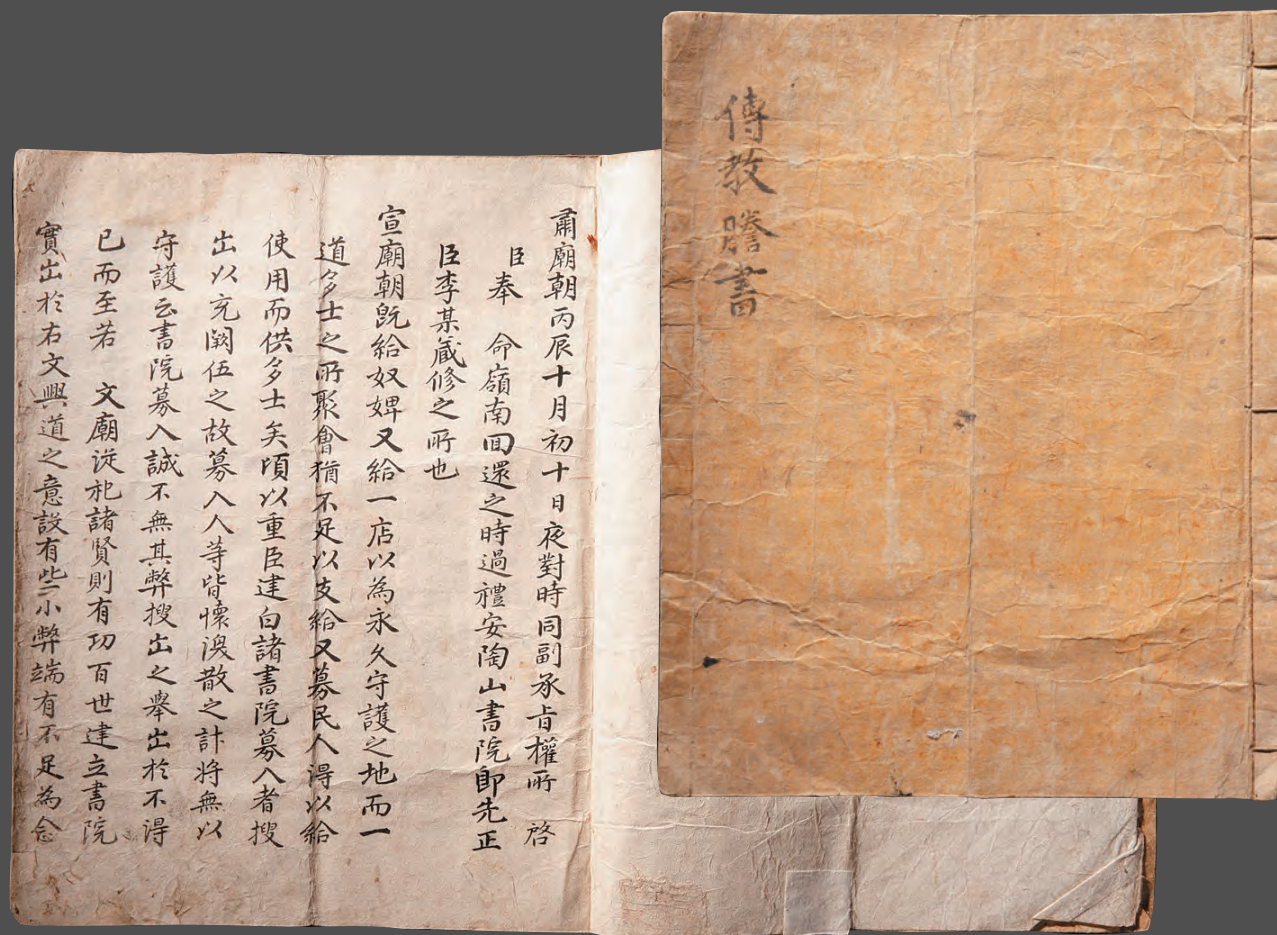 傳教謄書
肅廟朝丙辰十月初十日夜對時同副承旨權所 啓
臣奉 命嶺南回還之時過禮安陶山書院卽先正
臣李某蔵修之所也
宣廟朝旣給奴婢又給一店以為永久守護之地而一
道多士之所聚會猶不足以支給又募民人得以給
使用而供多士矣頃以重臣建白諸書院募入者搜
出以充闕伍之故募入人等皆懷渙散之計將無以
守護云書院募入誠不無其弊搜出之舉出於不得
已而至若 文廟從祀諸賢則有功百世建立書院
實出於右文興道之意設有些小弊端有不足為念